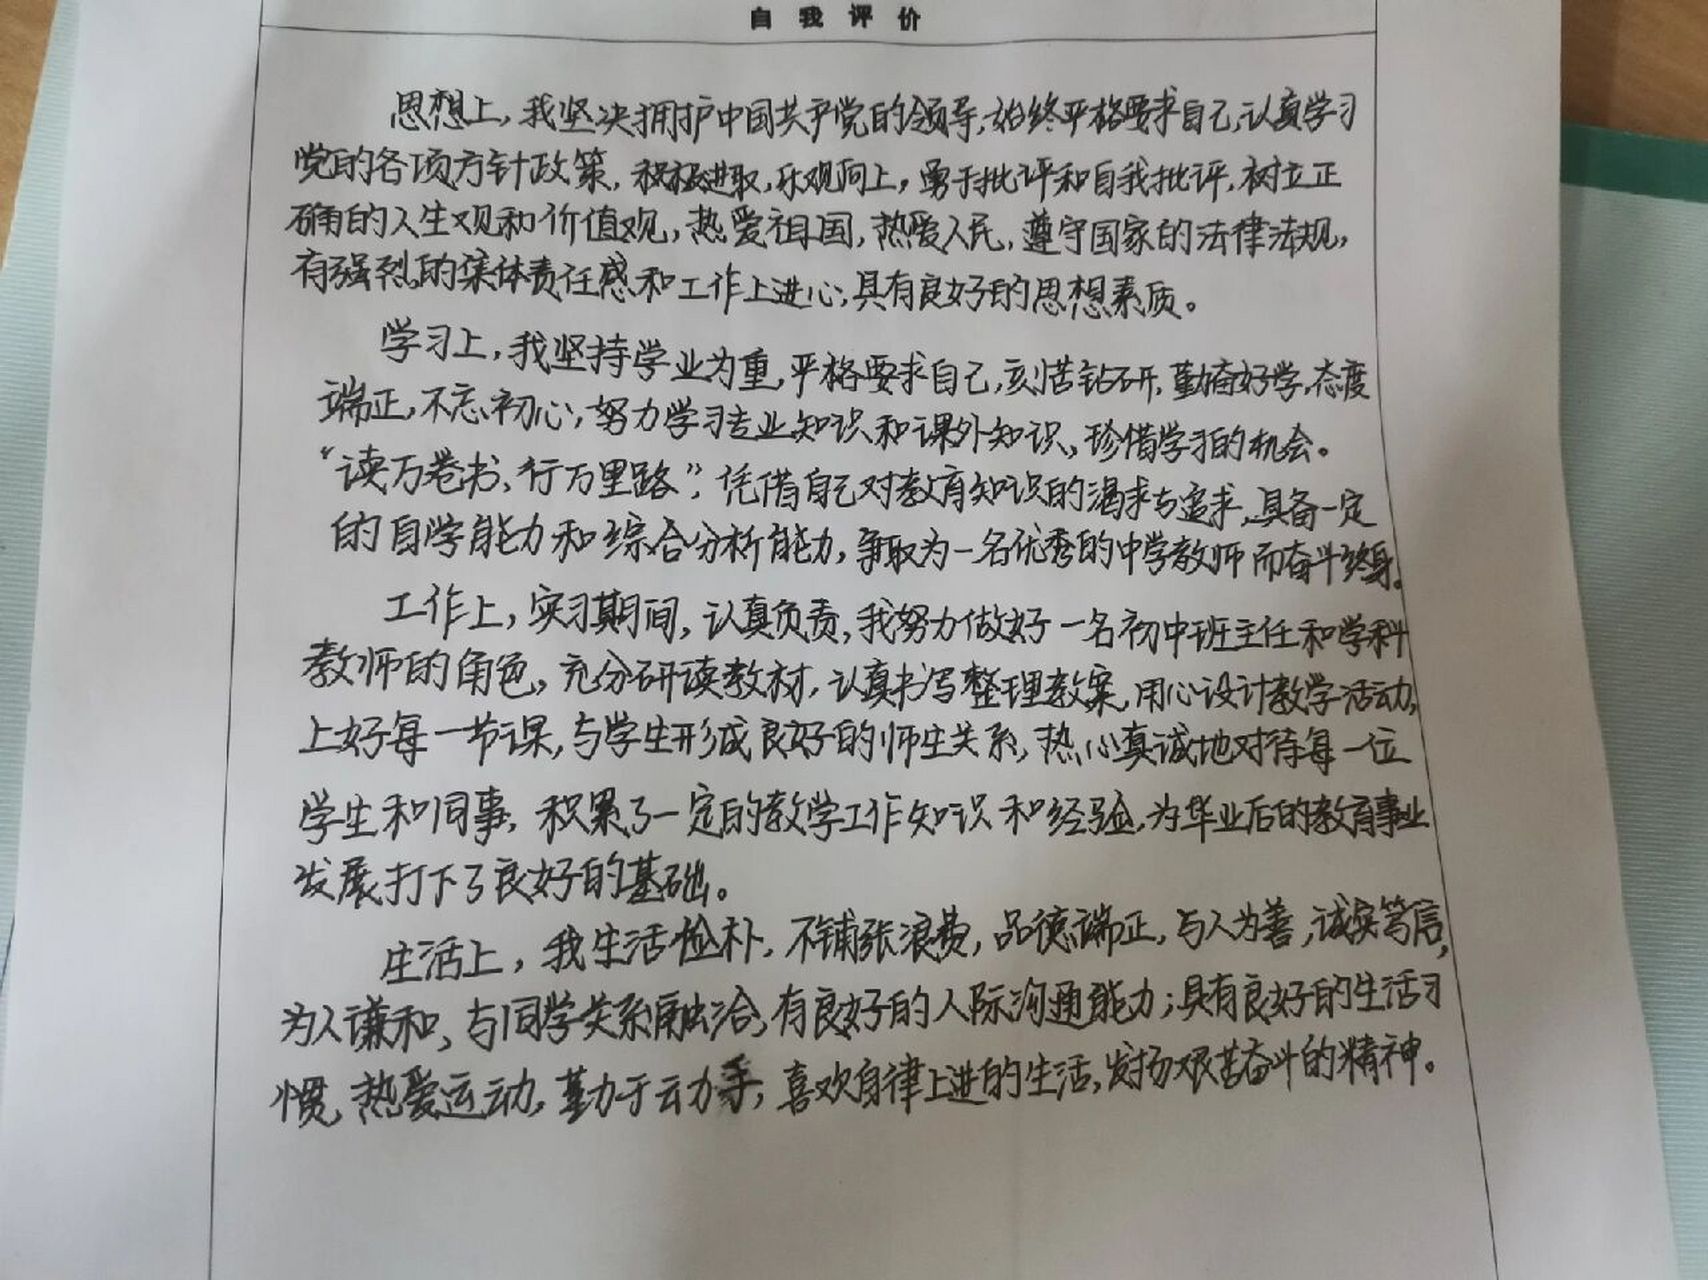 自我评价
思想上，我坚决拥护中国共产党的领导，始终严格要求自己，认真学习
党的各项方针政策，积极进取，乐观向上，勇于批评和自我批评，树立正
确的人生观和价值观，热爱祖国，热爱人民，遵守国家的法律法规，
有强烈的集体责任感和工作上进心，具有良好的思想素质。
学习上，我坚持学业为重，严格要求自己，刻苦钻研，勤奋好学，态度
端正，不忘初心，努力学习专业知识和课外知识，珍惜学习的机会。
“读万卷书，行万里路”，凭借自己对教育知识的渴求与追求，具备一定
的自学能力和综合分析能力，争取为一名优秀的中学教师而奋斗终身。
工作上，实习期间，认真负责，我努力做好一名初中班主任和学科
教师的角色，充分研读教材，认真书写整理教案，用心设计教学活动，
上好每一节课，与学生形成良好的师生关系，热心真诚地对待每一位
学生和同事，积累了一定的教学工作知识和经验，为毕业后的教育事业
发展打下了良好的基础。
生活上，我生活俭朴，不铺张浪费，品德端正，与人为善，诚实笃信，
为人谦和，与同学关系融洽，有良好的人际沟通能力；具有良好的生活习
惯，热爱运动，勤于动手，喜欢自律上进的生活，发扬艰苦奋斗的精神。